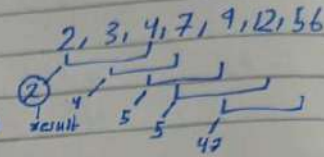 2, 3, 4, 7, 9, 12, 56
2
4
result
5
5
47